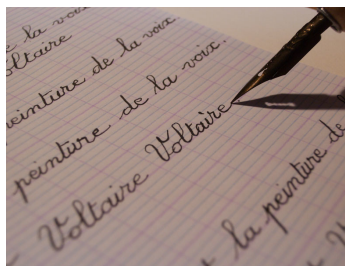 la voix
oltaire
peinture de la voix
peinture de la voix.
Voltaire Voltaire
t la peinture de